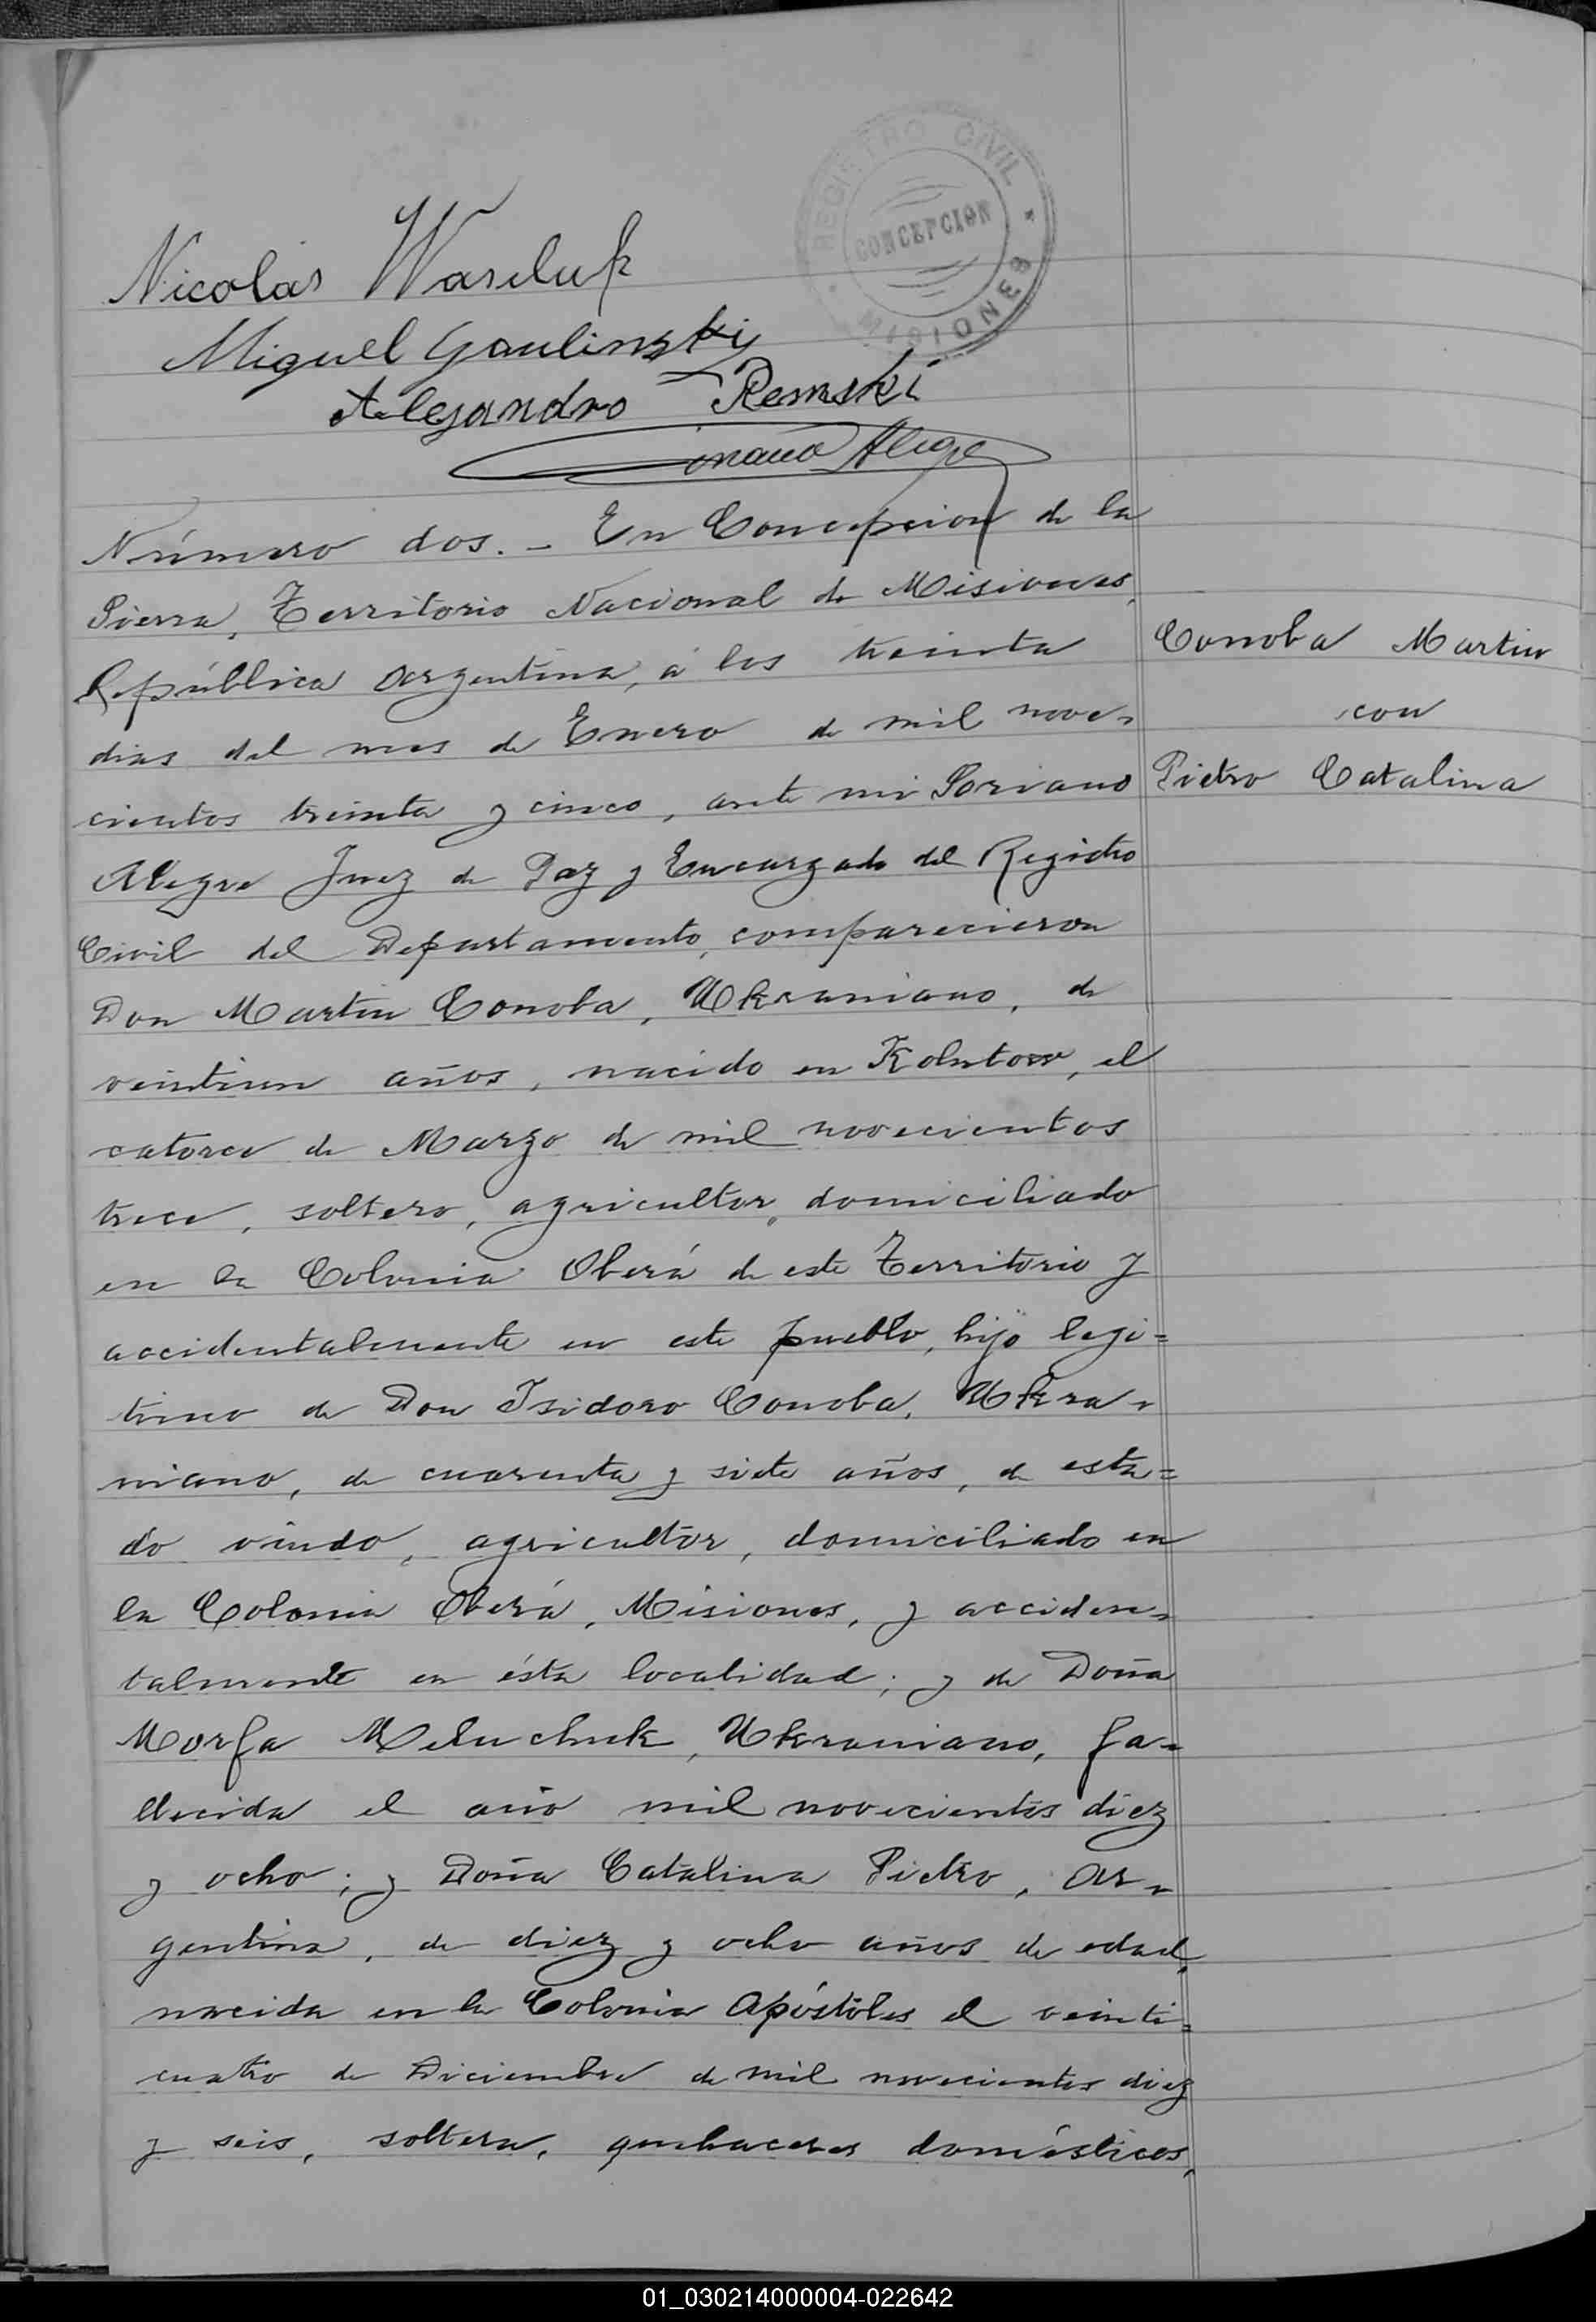 REGISTRO CIVIL
CONCEPCION
MISIONES
Nicolas Wasiluk
Miguel Gaulinski
Alejandro Remski
Alegre
Número dos. - En Concepcion de la
Sierra, Territorio Nacional de Misiones,
República Argentina, á los treinta
dias del mes de Enero de mil nove-
cientos treinta y cinco, ante mi Soriano
Alegre Juez de Paz y Encargado del Registro
Civil del Departamento, comparecieron
Don Martin Conoba, Ukraniano, de
veintiun años, nacido en Kolntow, el
catorce de Marzo de mil novecientos
trece, soltero, agricultor, domiciliado
en la Colonia Oberá de este Territorio y
accidentalmente en este pueblo, hijo legi=
timo de Don Isidoro Conoba, Ukra-
niano, de cuarenta y siete años, de esta=
do viudo, agricultor, domiciliado en
la Colonia Oberá, Misiones, y acciden-
talmente en ésta localidad; y de Doña
Morfa Meluchuk, Ukraniano, fa-
llecida el año mil novecientos diez
y ocho; y Doña Catalina Pietro, Ar-
gentina, de diez y ocho años de edad,
nacida en la Colonia Apóstoles el veinti=
cuatro de Diciembre de mil novecientos diez
y seis, soltera, quehaceres domésticos,
Conoba Martin
con
Pietro Catalina
01_030214000004-022642